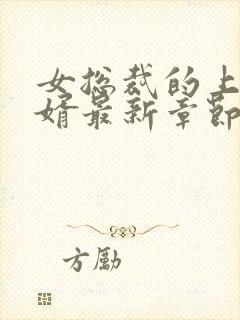 女总裁的上
婿最新章节
方励